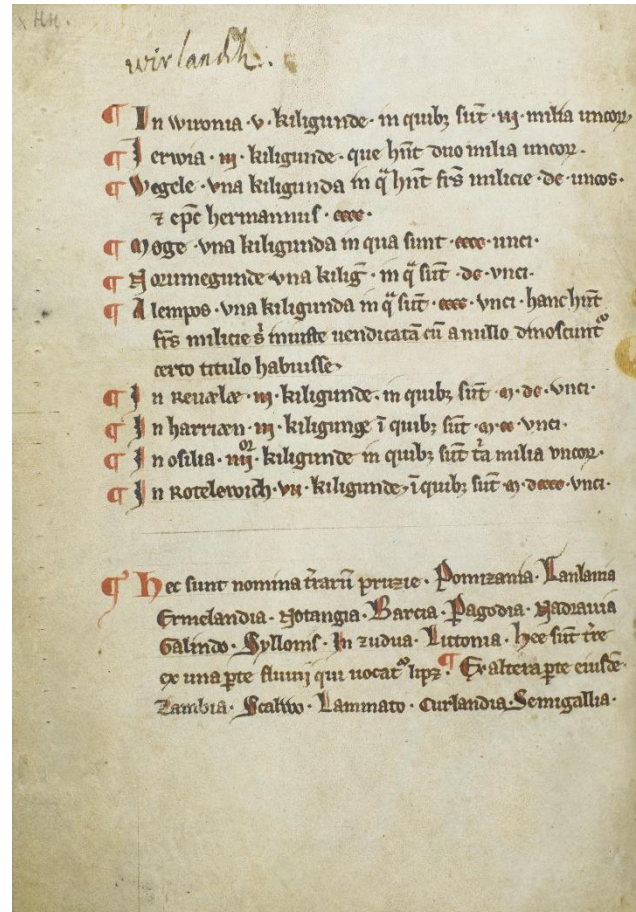 wirlandh.
¶ In wironia · v · kiligunde · in quibꝫ sūt · iij · milia uncoꝝ ·
¶ Jerwia · iij · kiligunde · que hn̄t duo milia uncoꝝ ·
¶ Wegele · vna kiligunda in qͣ hn̄t fr̄s milicie · dc · uncos ·
⁊ ep̄c hermannus · cccc ·
¶ Moge · vna kiligunda in qua sunt · cccc · unci ·
¶ Normegunde · vna kiliḡ · in qͣ sūt · dc · vnci ·
¶ Alempos · vna kiligunda in qͣ sūt · cccc · vnci · hanc hn̄t
fr̄s milicie s; iniuste uendicatā cū a nullo dinoscuntᷣ
certo titulo habuisse ·
¶ In Reuælæ · iij · kiligunde · in quibꝫ sūt · m · dc · vnci ·
¶ In harriæn · iij · kiligunge ī quibꝫ sūt · m · cc · vnci ·
¶ In osilia · iiijoꝛ · kiligunde in quibꝫ sūt tͥa milia vncoꝝ ·
¶ In Rotelewich · vii · kiligunde · ī quibꝫ sūt · m · dcccc · vnci ·
¶ Hec sunt nomina tr̄arū pruzie · Pomizania · Lanlania
Ermelandia · Notangia · Barcia · Pagodia · Nadrauia
Galindo · Syllonis · In zudua · Littonia · hee sūt tr̄e
ex una ꝑte fluuij qui uocatᷣ lipz · ¶ Ex altera ꝑte eiusdē
Zambia · Scalwo · Lammato · Curlandia · Semigallia ·